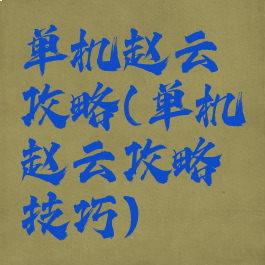 单机赵云
攻略(单机
赵云攻略
技巧)